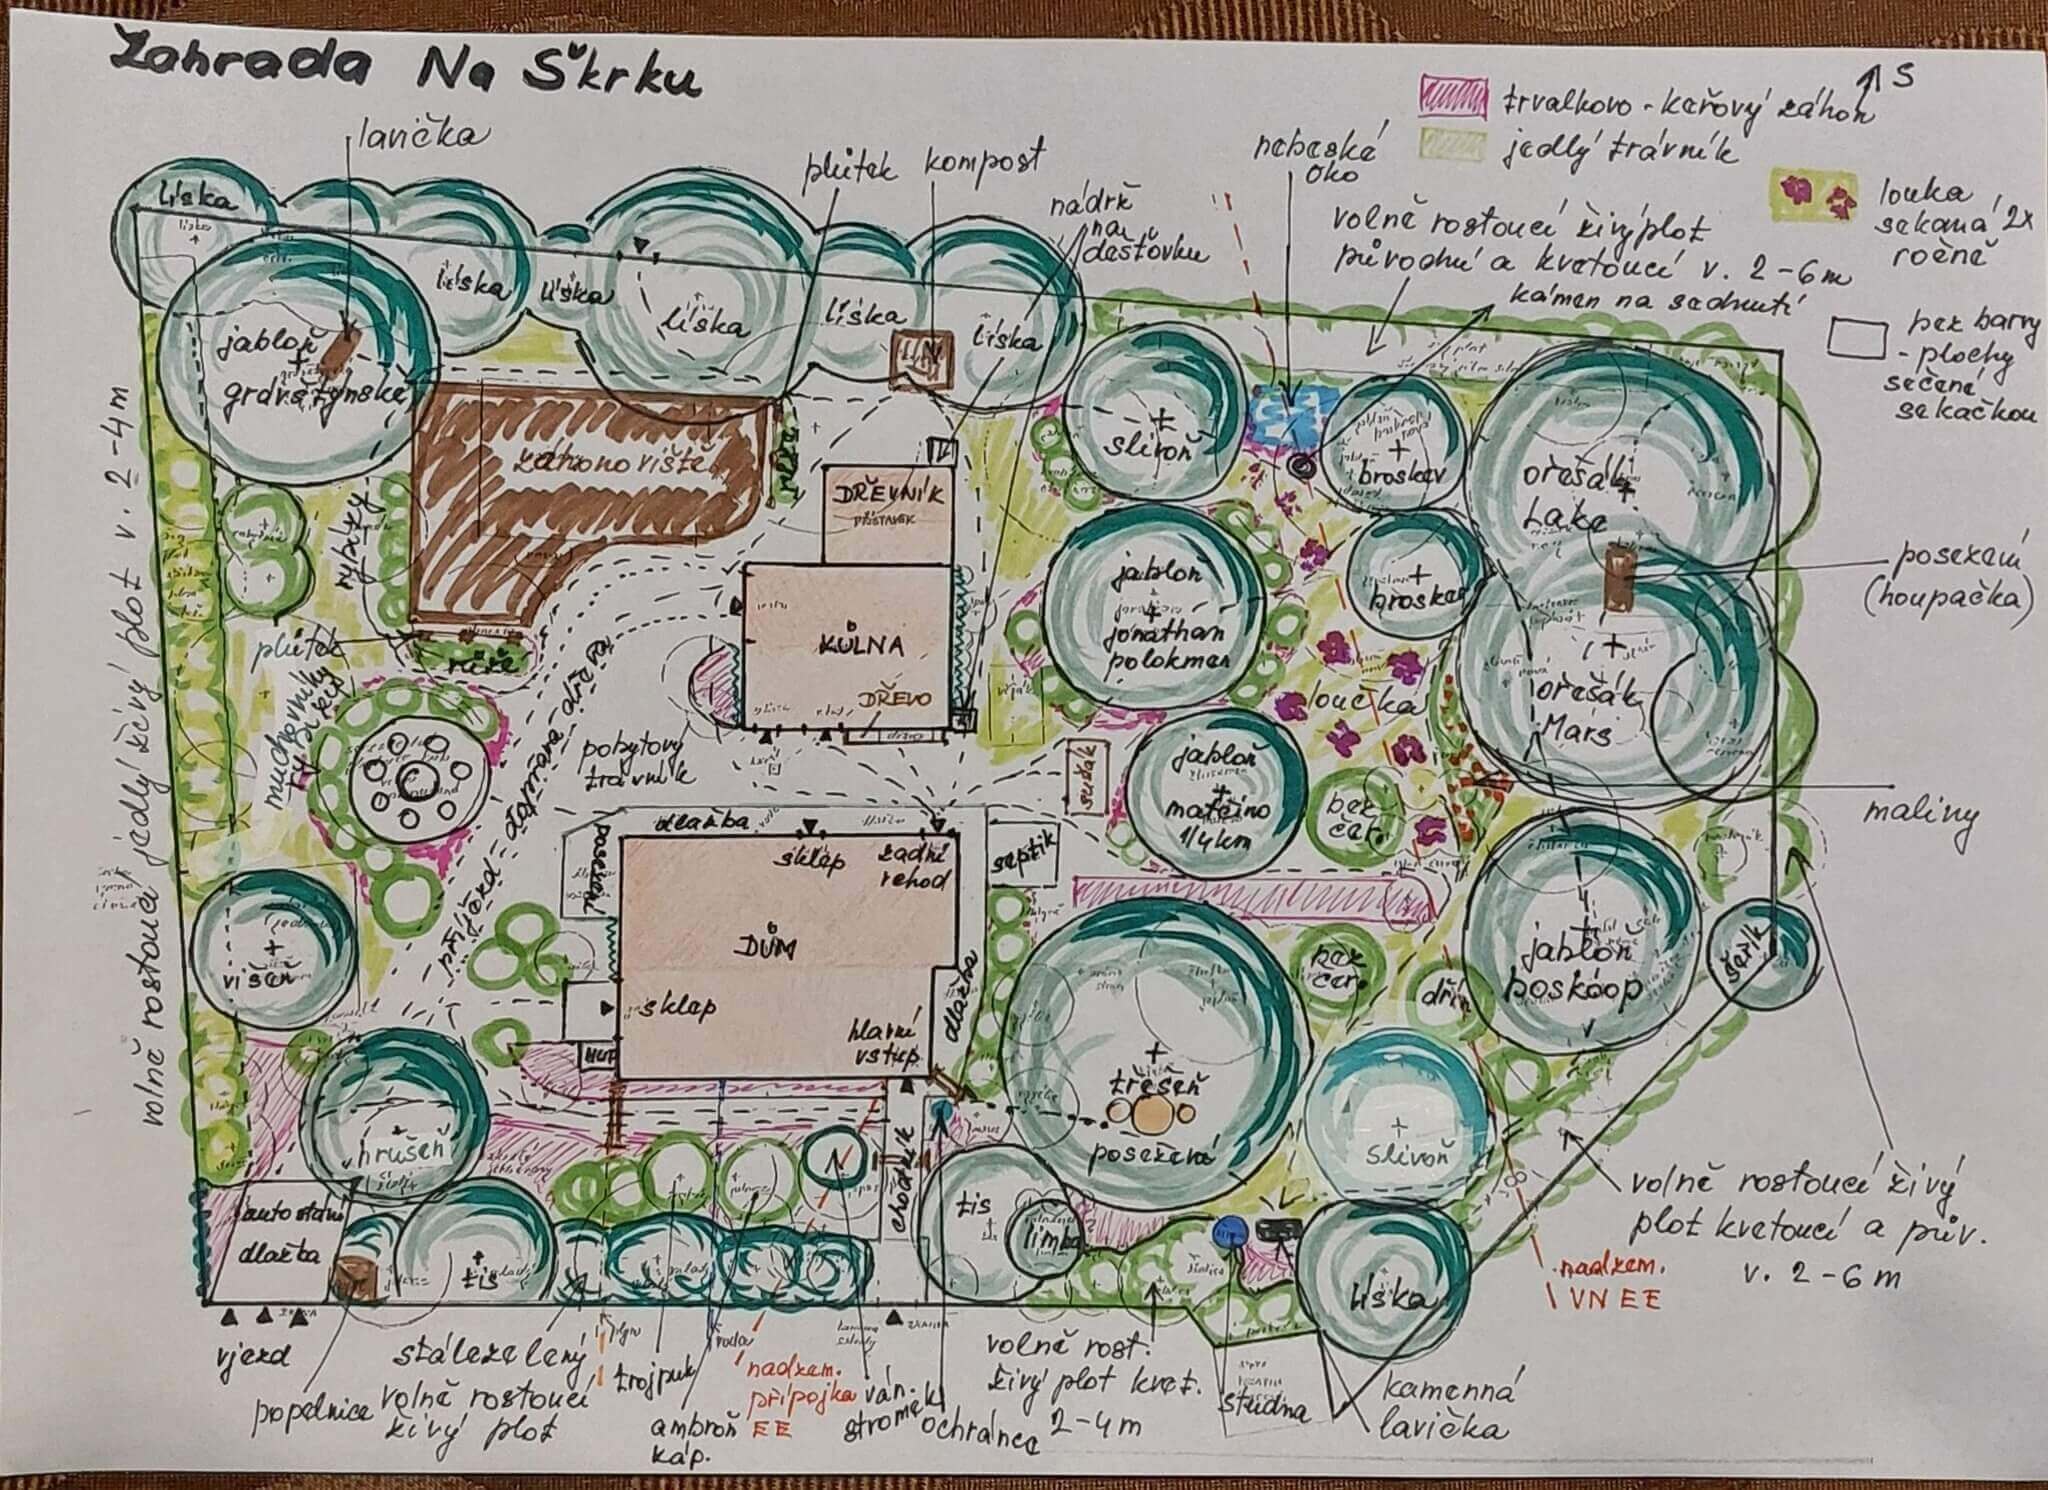 Zahrada Na Škrku
S
trvalkovo-keřový záhon
jedlý trávník
louka
sekaná 2x
ročně
bez barvy
- plochy
sečené
sekačkou
lavička
plůtek
kompost
nádrž
na
dešťovku
nebeské
oko
volně rostoucí živý plot
původní a kvetoucí v. 2-6m
kámen na sednutí
líska
líska
líska
líska
líska
líska
jabloň
grávštýnské
záhonoviště
rybízy
plůtek
růže
volně rostoucí jedlý živý plot v. 2-4m
DŘEVNÍK
PŘÍSTAVEK
KŮLNA
DŘEVO
slivoň
broskev
broskev
ořešák
Lake
posezení
(houpačka)
jabloň
jonathan
polokmen
loučka
ořešák
Mars
maliny
muchovníky
pobytový
trávník
příjezd
sušák
jabloň
matčino
1/4km
bez
čer.
dlažba
posezení
sklep
zadní
vchod
septik
DŮM
sklep
hlavní
vstup
dlažba
višeň
bez
čer.
dřín
jabloň
boskoop
šeřík
třešeň
posezení
slivoň
hrušeň
HUP
chodník
tis
limba
líska
autostání
dlažba
tis
volně rostoucí živý
plot kvetoucí a pův.
v. 2-6m
nadzem.
VN EE
vjezd
popelnice
stálezelený
volně rostoucí
živý plot
plyn
trojpuk
voda
ambroň
káp.
nadzem.
přípojka
EE
ván.
stromek
ochránce
volně rost.
živý plot kvet.
2-4m
studna
kamenná
lavička